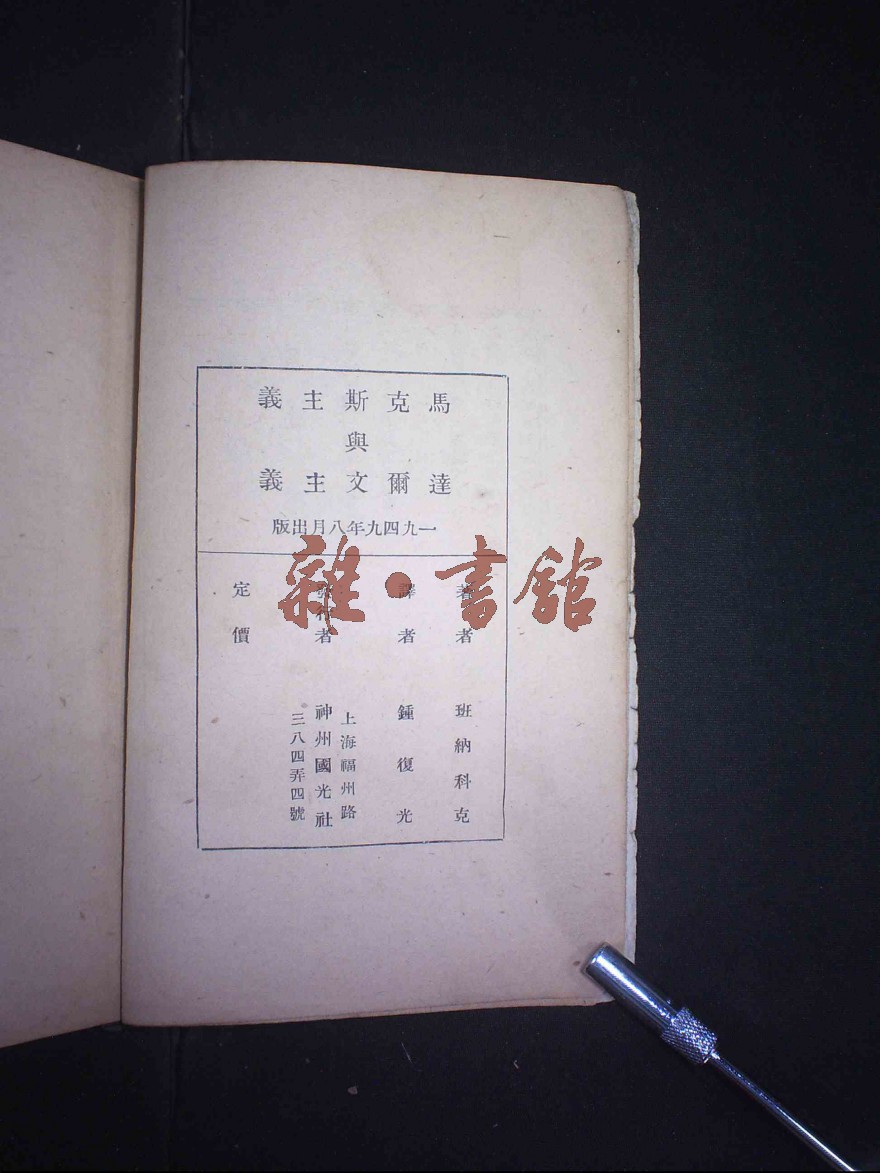 馬克斯主義
與
達爾文主義
一九四九年八月出版
著者 班納科克
譯者 鍾復光
發行者 神州國光社
上海福州路
三八四弄四號
定價
雜·書館